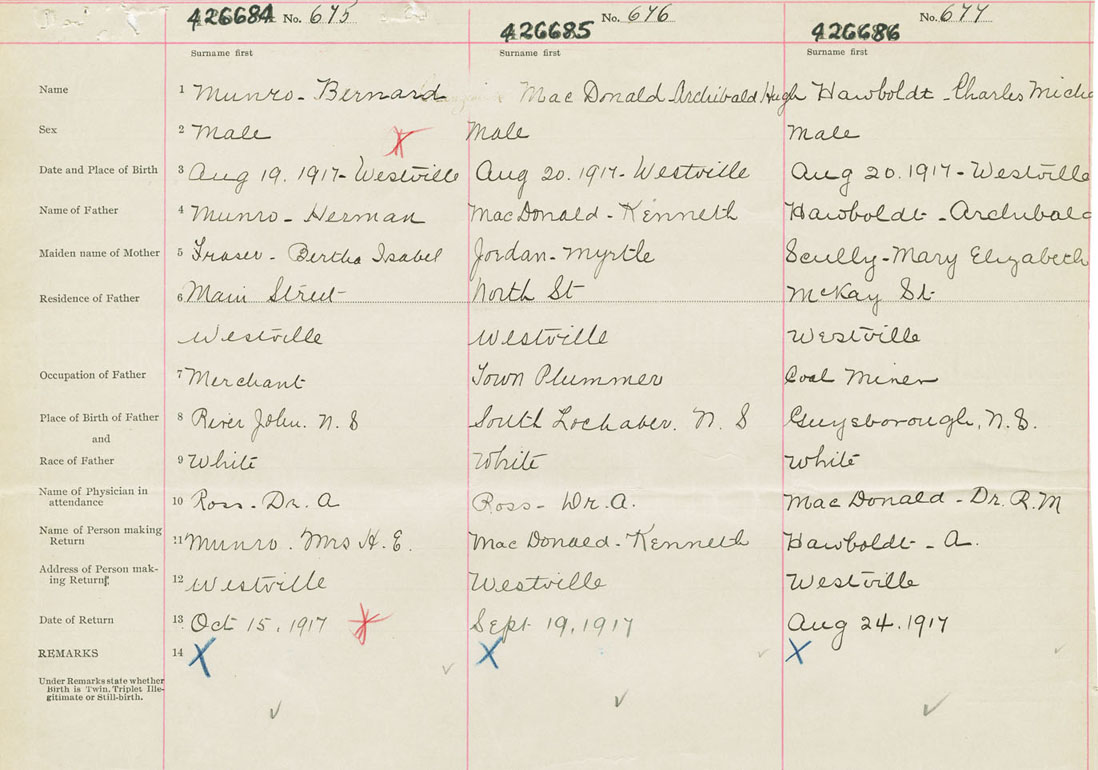 426684 No. 675 426685 No. 676 426686 No. 677
Surname first Surname first Surname first
Name 1 Munro - Bernard Mac Donald Archibald Hugh Hawboldt - Charles
Sex 2 Male Male Male
Date and Place of Birth 3 Aug 19. 1917 - Westville Aug 20. 1917 - Westville Aug 20. 1917 - Westville
Name of Father 4 Munro - Herman MacDonald - Kenneth Hawboldt - Archibald
Maiden name of Mother 5 Fraser - Bertha Isabel Jordan - Myrtle Scully - Mary Elizabeth
Residence of Father 6 Main Street North St McKay St.
Westville Westville Westville
Occupation of Father 7 Merchant Town Plummer Coal Miner
Place of Birth of Father 8 River John. N. S South Lochaber. N. S Guysborough, N. S.
and
Race of Father 9 White White White
Name of Physician in
attendance 10 Ross - Dr. A Ross - Dr. A. Mac Donald - Dr. R. M
Name of Person making
Return 11 Munro. Mrs H. E. Mac Donald - Kenneth Hawboldt - A.
Address of Person mak-
ing Return 12 Westville Westville Westville
Date of Return 13 Oct 15, 1917 Sept 19, 1917 Aug 24. 1917
REMARKS 14 X X X
Under Remarks state whether
Birth is Twin, Triplet Ille-
gitimate or Still-birth.